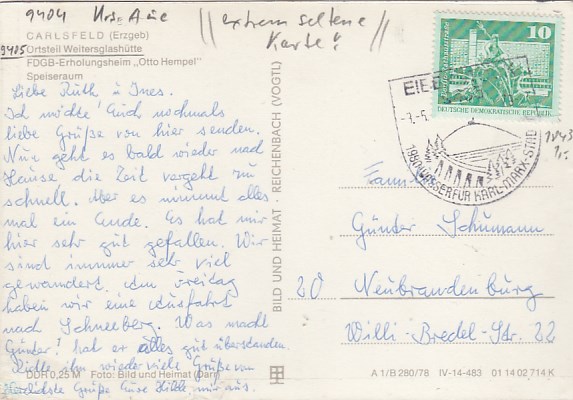 9404 Krs. Aue
// extrem seltene
Karte! //
CARLSFELD (Erzgeb)
9405 Ortsteil Weitersglashütte
FDGB-Erholungsheim „Otto Hempel"
Speiseraum
Liebe Ruth u Ines.
Ich möchte Euch nochmals
liebe Grüße von hier senden.
Nun geht es bald wieder nach
Hause die Zeit vergeht zu
schnell. Aber es nimmt alles
mal ein Ende. Es hat mir
hier sehr gut gefallen. Wir
sind immer sehr viel
gewandert. Am Freitag
haben wir eine Ausfahrt
nach Schneeberg. Was macht
Günter? hat er alles gut überstanden.
ihm wieder viele Grüße von
Herzlichste Grüße Eure mir aus.
DDR 0,25 M Foto: Bild und Heimat (Darr)
BILD UND HEIMAT REICHENBACH (VOGTL)
10
DEUTSCHE DEMOKRATISCHE REPUBLIK
EIBE
WASSER FÜR KARL-MARX-STADT
Fam.
Günter Schumann
20 Neubrandenburg
Willi-Bredel-Str. 22
A 1/B 280/78 IV-14-483 01 14 02 714 K